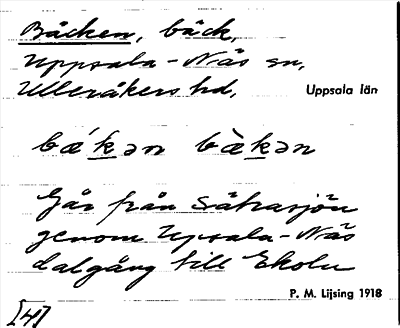 Bäcken, bäck,
Uppsala-Näs sn,
Ulleråkers hd, Uppsala län
bǽkən bæ̀kən
Går från Sätrasjön
genom Upsala-Näs
dalgång till Ekoln
P. M. Lijsing 1918